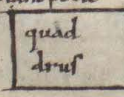 quad
druſ